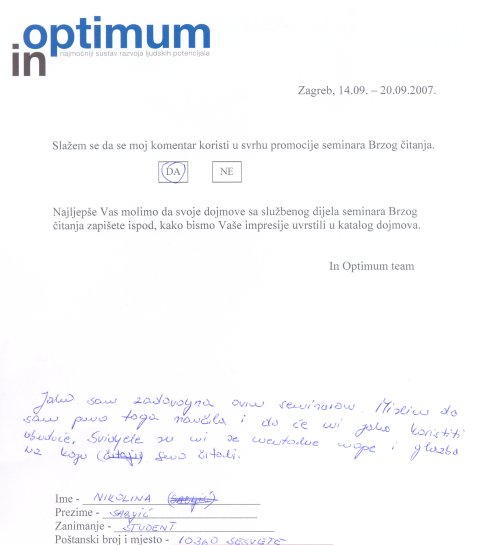 in optimum
najmoćniji sustav razvoja ljudskih potencijala
Zagreb, 14.09. – 20.09.2007.
Slažem se da se moj komentar koristi u svrhu promocije seminara Brzog čitanja.
DA NE
Najljepše Vas molimo da svoje dojmove sa službenog dijela seminara Brzog
čitanja zapišete ispod, kako bismo Vaše impresije uvrstili u katalog dojmova.
In Optimum team
Jako sam zadovoljna ovim seminarom. Mislim da
sam puno toga naučila i da će mi jako koristiti
ubuduće. Svidjele su mi se mentalne mape i glazba
na koju smo čitali.
Ime - NIKOLINA
Prezime -
Zanimanje - STUDENT
Poštanski broj i mjesto - 10360 SESVETE